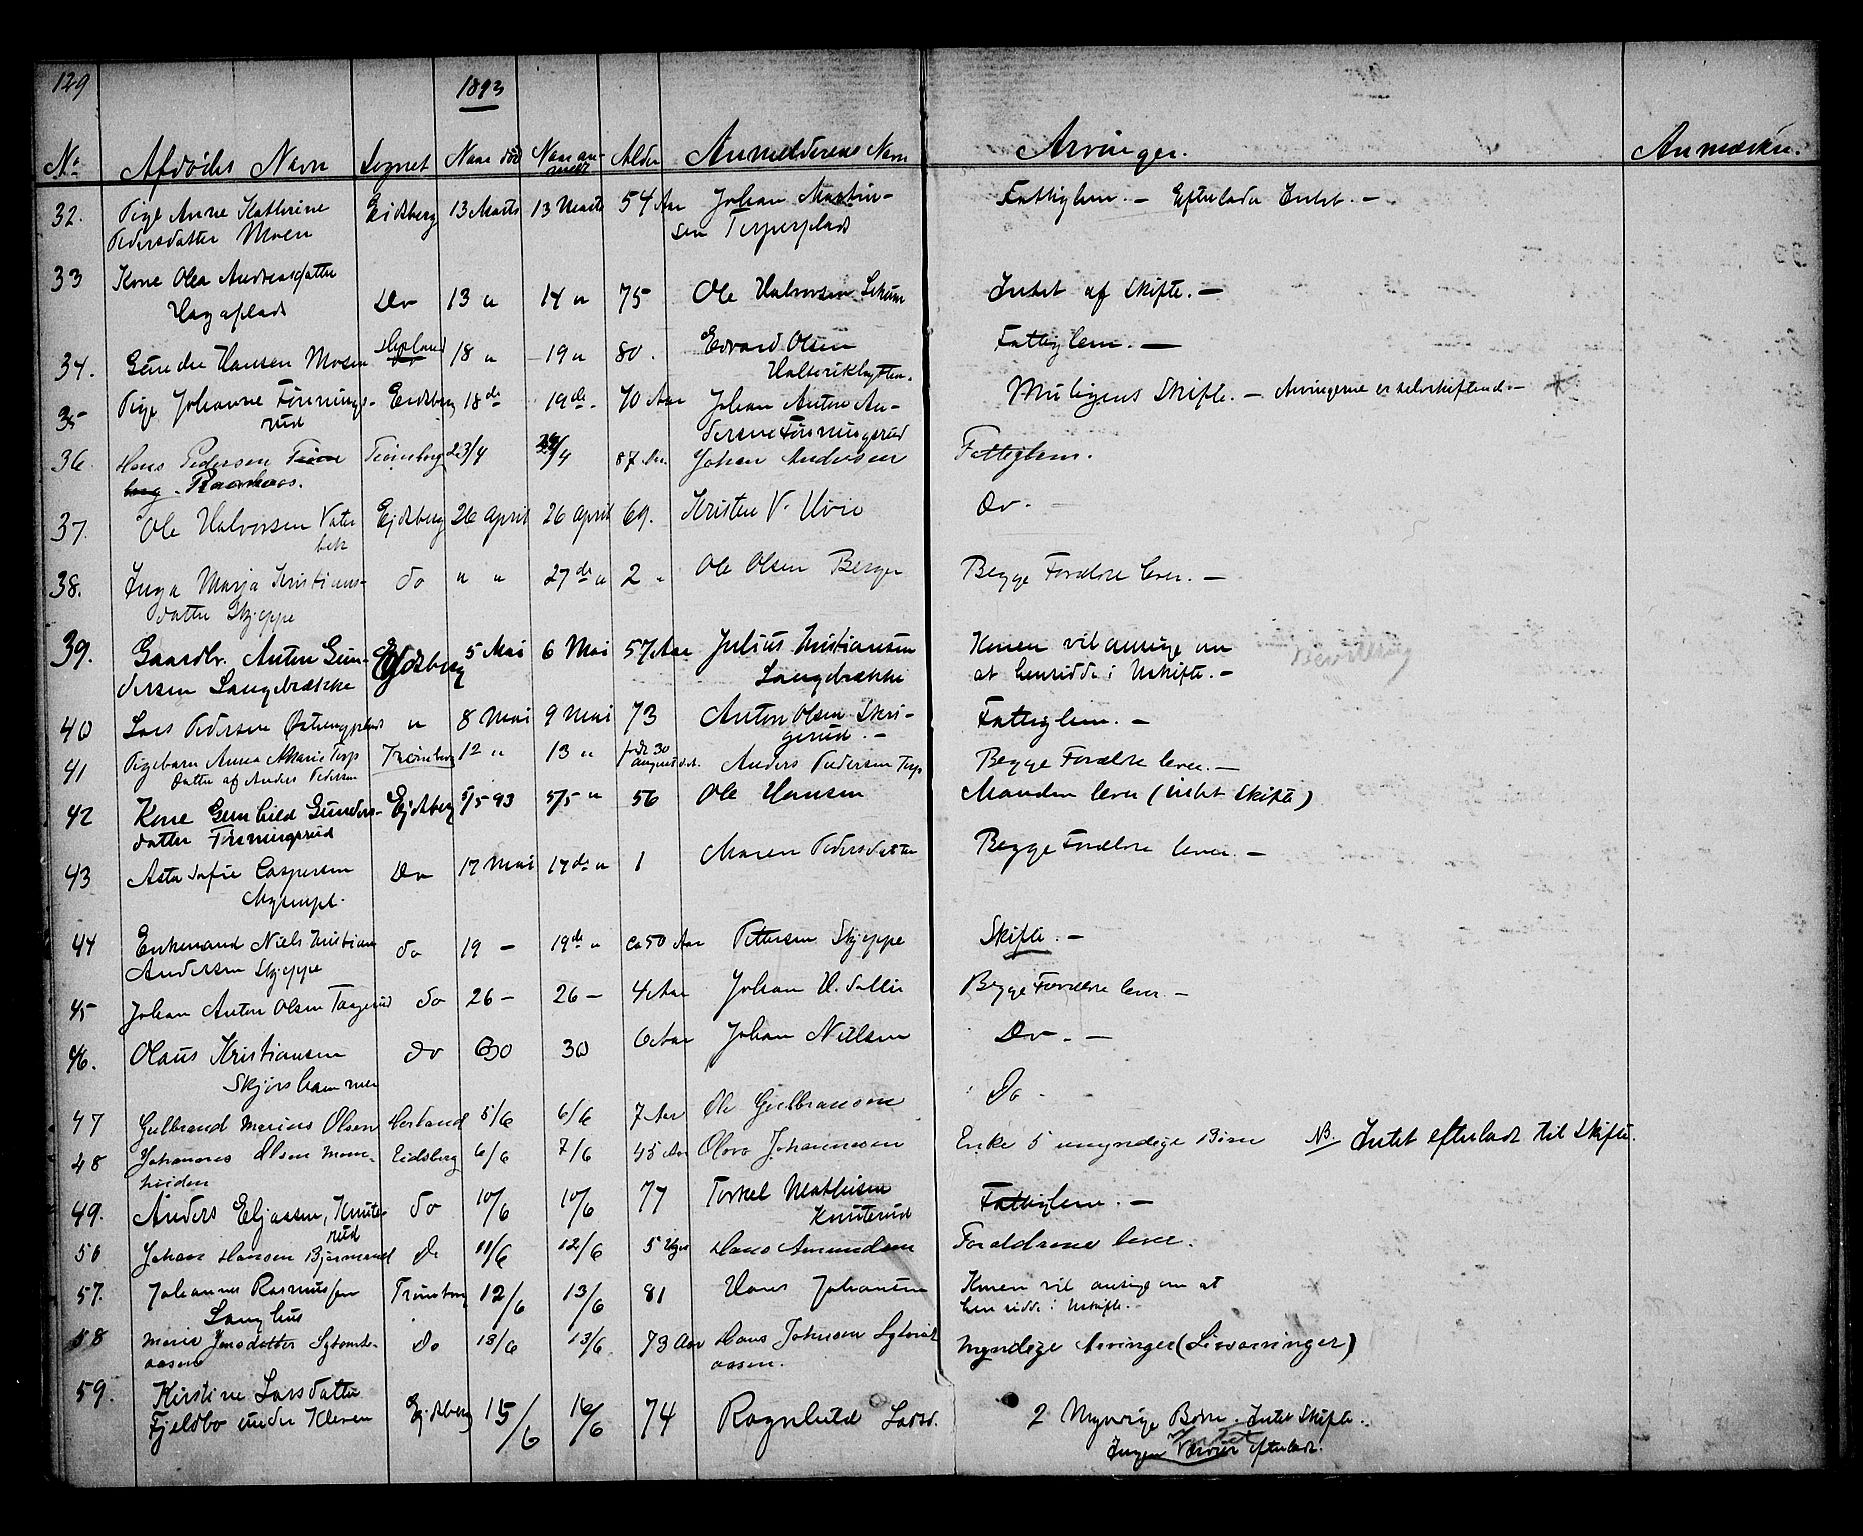 129
1893
No Afdødes Navn Sognet Naar død Naar an- Alder Anmelderens Navn Arvinger. Anmærkn.
meldt
32. Pige Anne Kathrine Eidsberg 13 Marts 13 Marts 54 Aar Johan Martin- Fattiglem. — Efterlader Intet. —
Pedersdatter Moen sen Torperplads
33 Kone Olea Andreasdatter
Hagaplads Do 13 " 14 " 75 Ole Halvorsen Intet af Skifte. —
34. Hansen Moen 18 " 19 " 80. Edvard Olsen Fattiglem. —
35 Pige Johanne Fosnings- Eidsberg 18de 19de 70 Aar Johan Anton An- Muligens Skifte. — Arvingerne er selvskiftende —
rud dersen Fosningsrud
36. Hans Pedersen Trøm- Trømborg 23/4 /4 87 Aar Johan Andersen Fattiglem.
borg
37. Ole Halvorsen Vater Ejdsberg 26 April 26 April 69. Kristen V. Do.
bek
38. Inga Marja Kristians- do " " 27de " 2 " Ole Olsen Berger Begge Forældre lever. —
datter Skjeppe
39. Gaardbr. Anton Gun- Ejdsberg 5 Mai 6 Mai 57 Aar Julius Kristiansen Konen vil ansøge om Bevilling
dersen Langebrække Langebrække at hensidde i Uskifte. —
40 Lars Pedersen " 8 Mai 9 Mai 73 Anton Olsen Skri- Fattiglem. —
gerud. —
41 Pigebarn Anna Marie Torp Trømborg 12 " 13 " født 30 Anders Pedersen Torp Begge Forældre lever. —
Datter af Anders Pedersen august
42 Kone Gunhild Gunders- Ejdsberg 5/5 93 5/5 " 56 Ole Hansen Manden lever (intet Skifte)
datter Fosningsrud
43 Asta Sofie Caspersen Do 17 Mai 17de " 1 Maren Pedersdatter Begge Forældre lever. —
44 Enkemand Niels Kristian do 19 — 19de " ca 50 Aar Pettersen Skjeppe Skifte. —
Andersen Skjeppe
45 Johan Anton Olsen do 26 — 26 — 4 Aar Johan H. Begge Forældre lever. —
46. Olaus Kristiansen do 30 30 6 Aar Johan Nielsen Do. —
Skjørshammer
47 Gulbrand Marius Olsen Hertand 5/6 6/6 7 Aar Ole Gulbransen Do.
48 Johannes Olsen Mone- Eidsberg 6/6 7/6 45 Aar Olava Johannesen Enke 5 umyndige Børn NB Intet efterladt til Skifte.
49. Anders Eljassen, Knute- do 10/6 10/6 77 Torkel Mathisen Fattiglem. —
rud Knuterud
56 Johan Hansen Do 11/6 12/6 5 Uger Hans Amundsen Forældrene lever.
57. Johannes Rasmussen Trømborg 12/6 13/6 81 Hans Johansen Konen vil ansøge om at
Langhus hensidde i Uskifte. —
58 Marie Jensdatter Do 13/6 13/6 73 Aar Hans Johnsen Myndige Arvinger (Livsarvinger)
aasen aasen.
59. Kirstine Larsdatter
Fjeldbo under Kleven Ejdsberg 15/6 16/6 74 Ragnhild Larsd. 2 Myndige Børn. Intet Skifte.
Ingen efterladt.